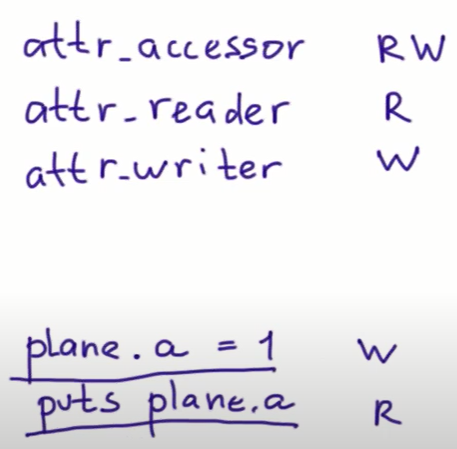 attr_accessor RW
attr_reader R
attr_writer W
plane.a = 1 W
puts plane.a R